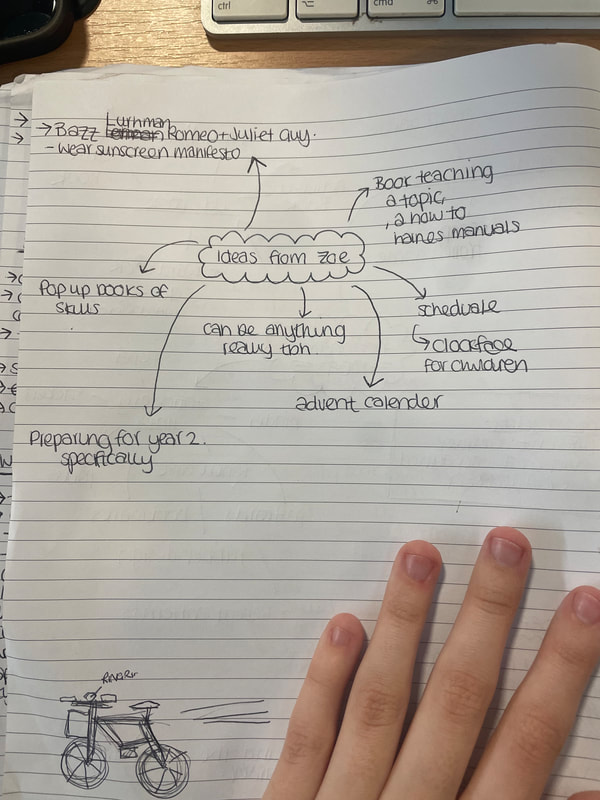 ctrl
⌥
cmd ⌘
→ Bazz Lurhman Romeo + Juliet guy.
- wear sunscreen manifesto
Book teaching
a topic,
, a how to
haines manuals
Ideas from Zoe
Pop up books of
skills
can be anything
really tbh
scheduale
↳ clockface
for children
advent calender
Preparing for year 2.
specifically